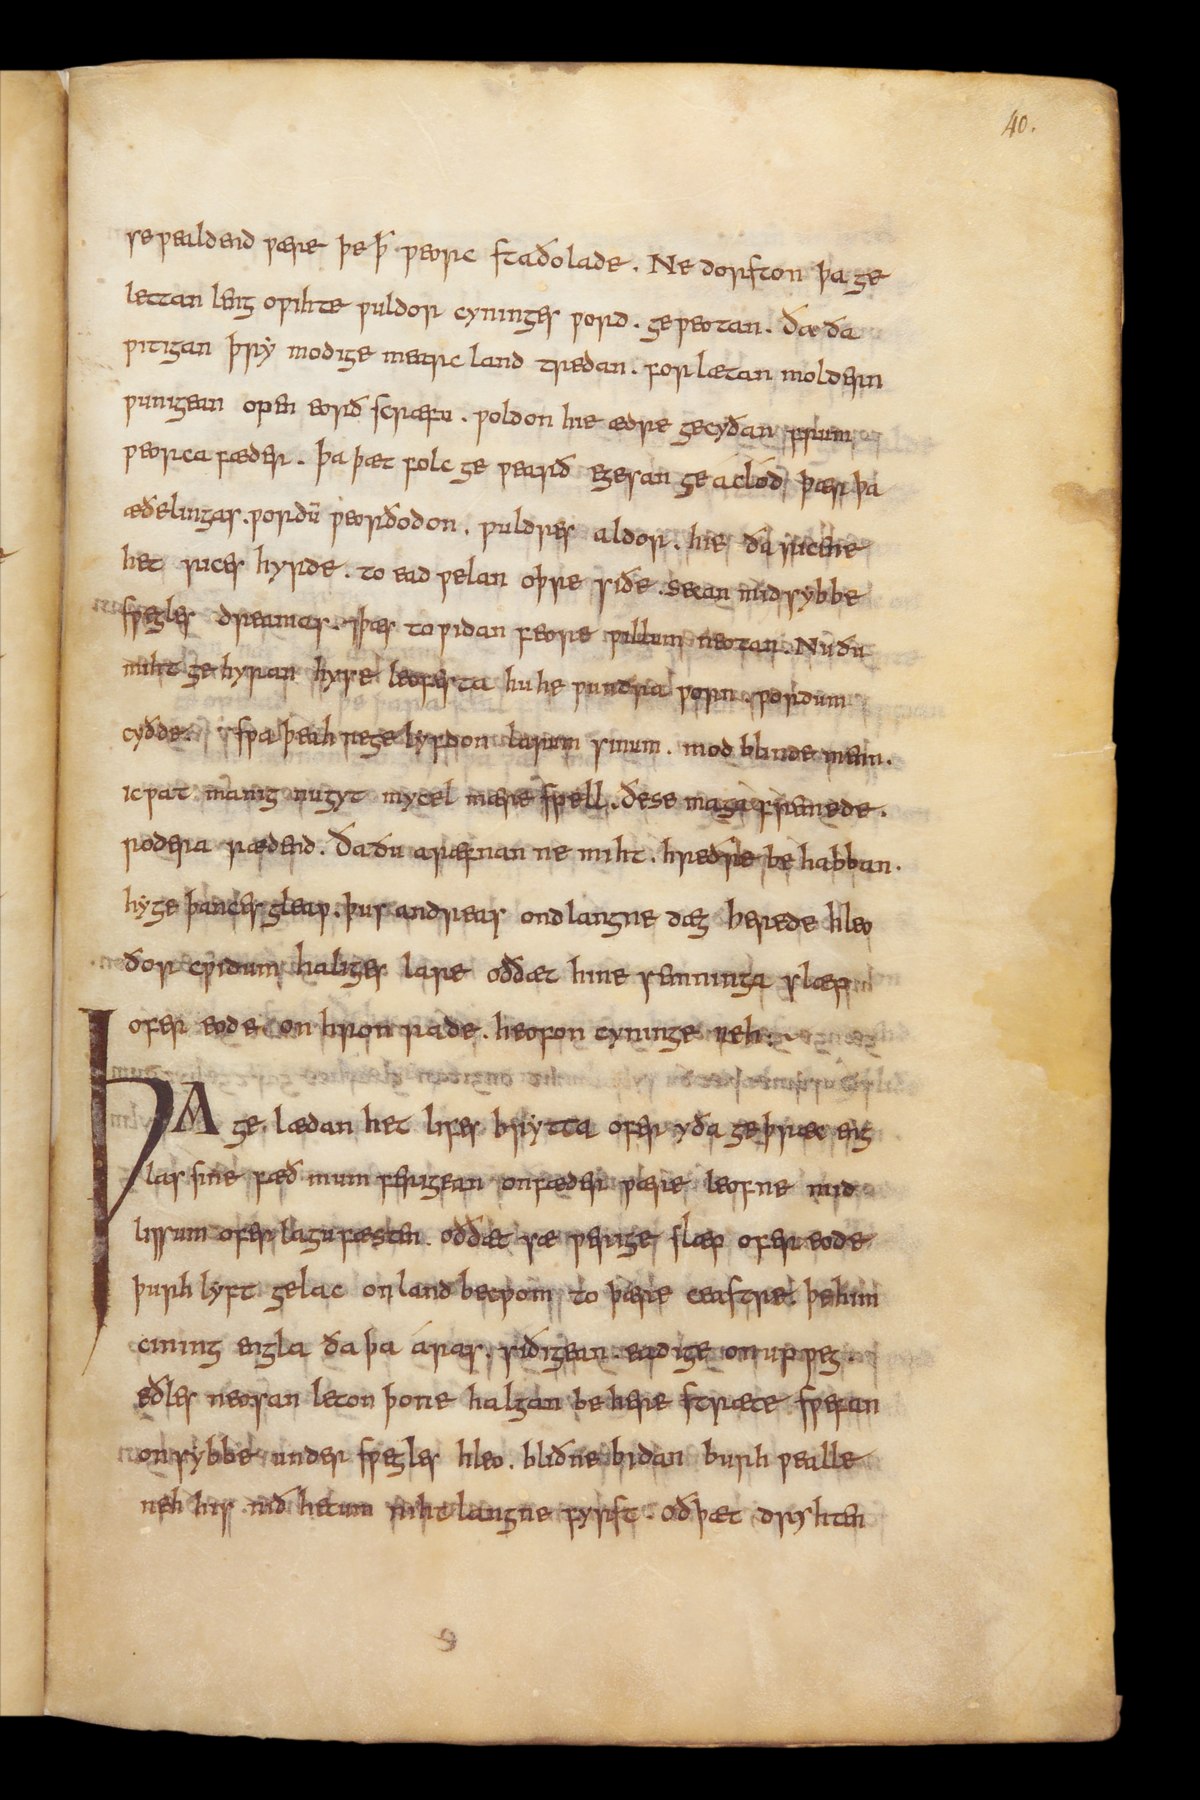 40.
se ƿealdend ƿære þe ꝥ ƿeorc staðolade . Ne dorston þa ge
lettan leng oƿihte ƿuldor cyninges ƿord . geƿeotan . ðæ ða
ƿitigan þry modige mearc land tredan . forlætan moldern
ƿunigean open eorð scræfu . ƿoldon hie ædre gecyðan frum
ƿeorca fæder . þa þæt folc ge ƿearð egesan ge áclod þær þa
æðelingas . ƿordū ƿeorðodon . ƿuldres aldor . hie ða ricene
het rices hyrde . to ead ƿelan oþre siðe . secan mid sybbe
sƿegles dreamas . ⁊ þæs to ƿidan feore ƿillum neotan . Nu ðu
miht ge hyran hyse leofesta hu he ƿundra ƿorn . ƿordum
cyðde . sƿa þeah ne ge lyfdon larum sinum . mod blinde men .
ic ƿat manig nu gyt mycel mære sƿell . ðe se maga fremede .
rodera rædend . ða ðu aræfnan ne miht . hreðre be habban .
hyge þances gleaƿ . þus andreas ondlangne dæg herede hleo
ðor cƿidum haliges lare oððæt hine semninga slæp
ofer eode . on hron rade . heofon cyninge neh :~
ÞA ge lædan het lifes brytta ofer yða geþræc eng
las sine fæðmum ferigean on fæder ƿære leofne mid
lissum ofer lagu fæsten . oððæt sæ ƿerige slæp ofer eode
þurh lyft gelac on land becƿom to þære ceastre . þe him
cining engla ða þa áras . siðigean . eadige on upp ƿeg .
eðles neosan leton þone halgan be here stræte sƿefan
on sybbe under sƿegles hleo . bliðne bidan burh ƿealle
neh his nið hetum niht langne fyrst . oð þæt dryhten